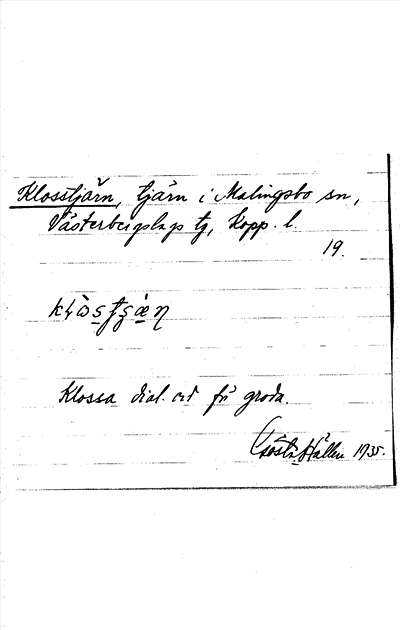 Klosstjärn, tjärn i Malingsbo sn,
Västerbergslags tg, Kopp. l.
19.
Klossa dial. ord för groda.
Gösta Hállen 1935.